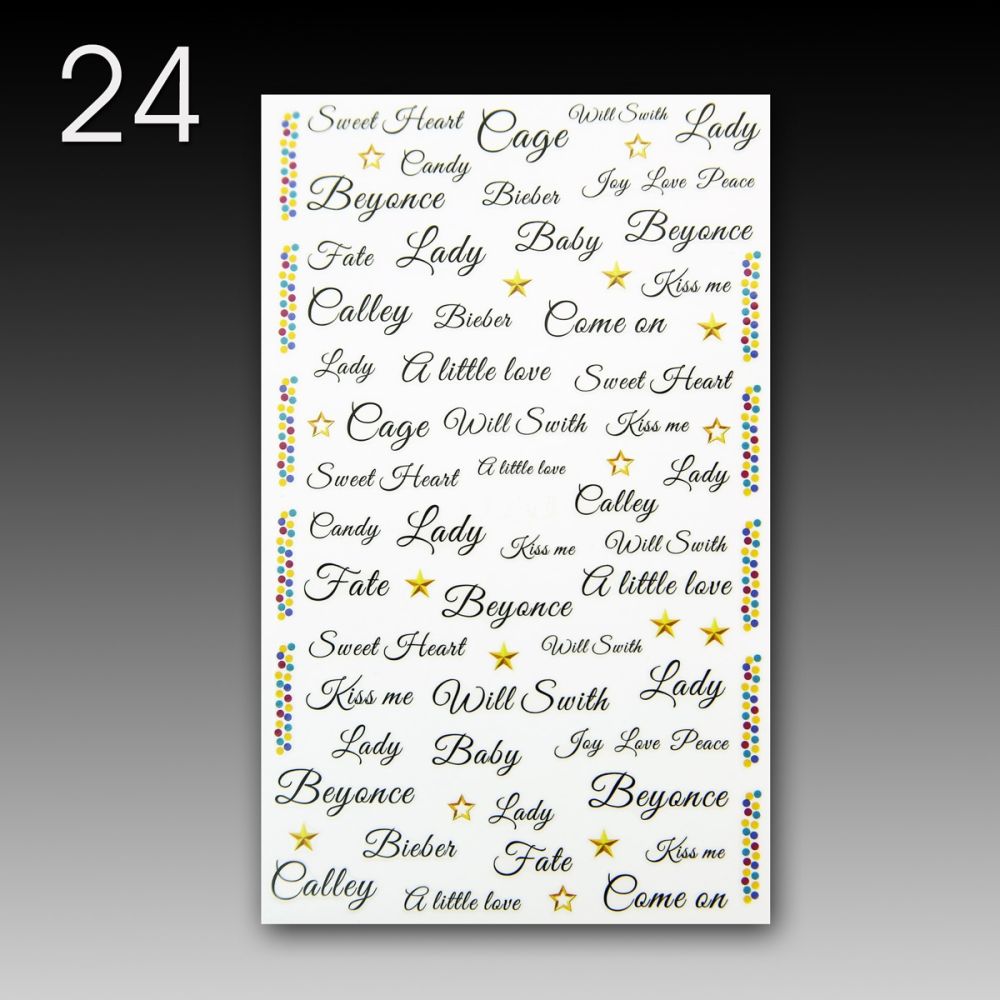 24
Sweet Heart Cage Will Swith Lady
Candy
Beyonce Bieber Joy Love Peace
Fate Lady Baby Beyonce
Kiss me
Calley Bieber Come on
Lady A little love Sweet Heart
Cage Will Swith Kiss me
Sweet Heart A little love Lady
Calley
Candy Lady Kiss me Will Swith
Fate Beyonce A little love
Sweet Heart Will Swith
Kiss me Will Swith Lady
Lady Baby Joy Love Peace
Beyonce Lady Beyonce
Bieber Fate Kiss me
Calley A little love Come on